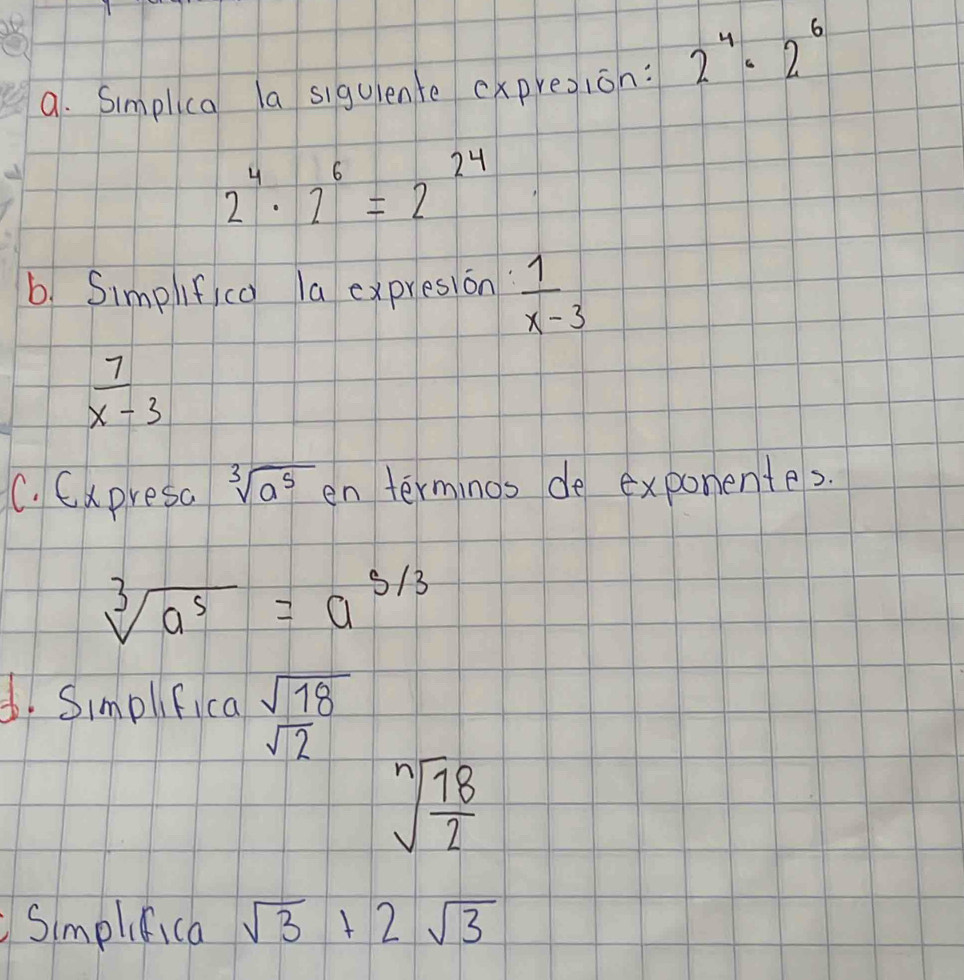 a. Simplica la siguiente expresión: 2⁴ · 2⁶
2⁴ · 2⁶ = 2²⁴
b. Simplifica la expresión: 1/(x-3)
1/(x-3)
C. Expresa ³√a⁵ en términos de exponentes.
³√a⁵ = a^5/3
d. Simplifica √18/√2
ⁿ√(18/2)
Simplifica √3 + 2√3